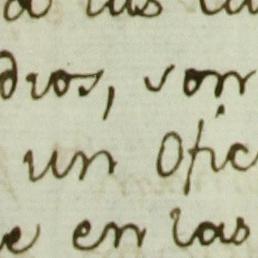 a las la
dios, son
un Ofic
e en las